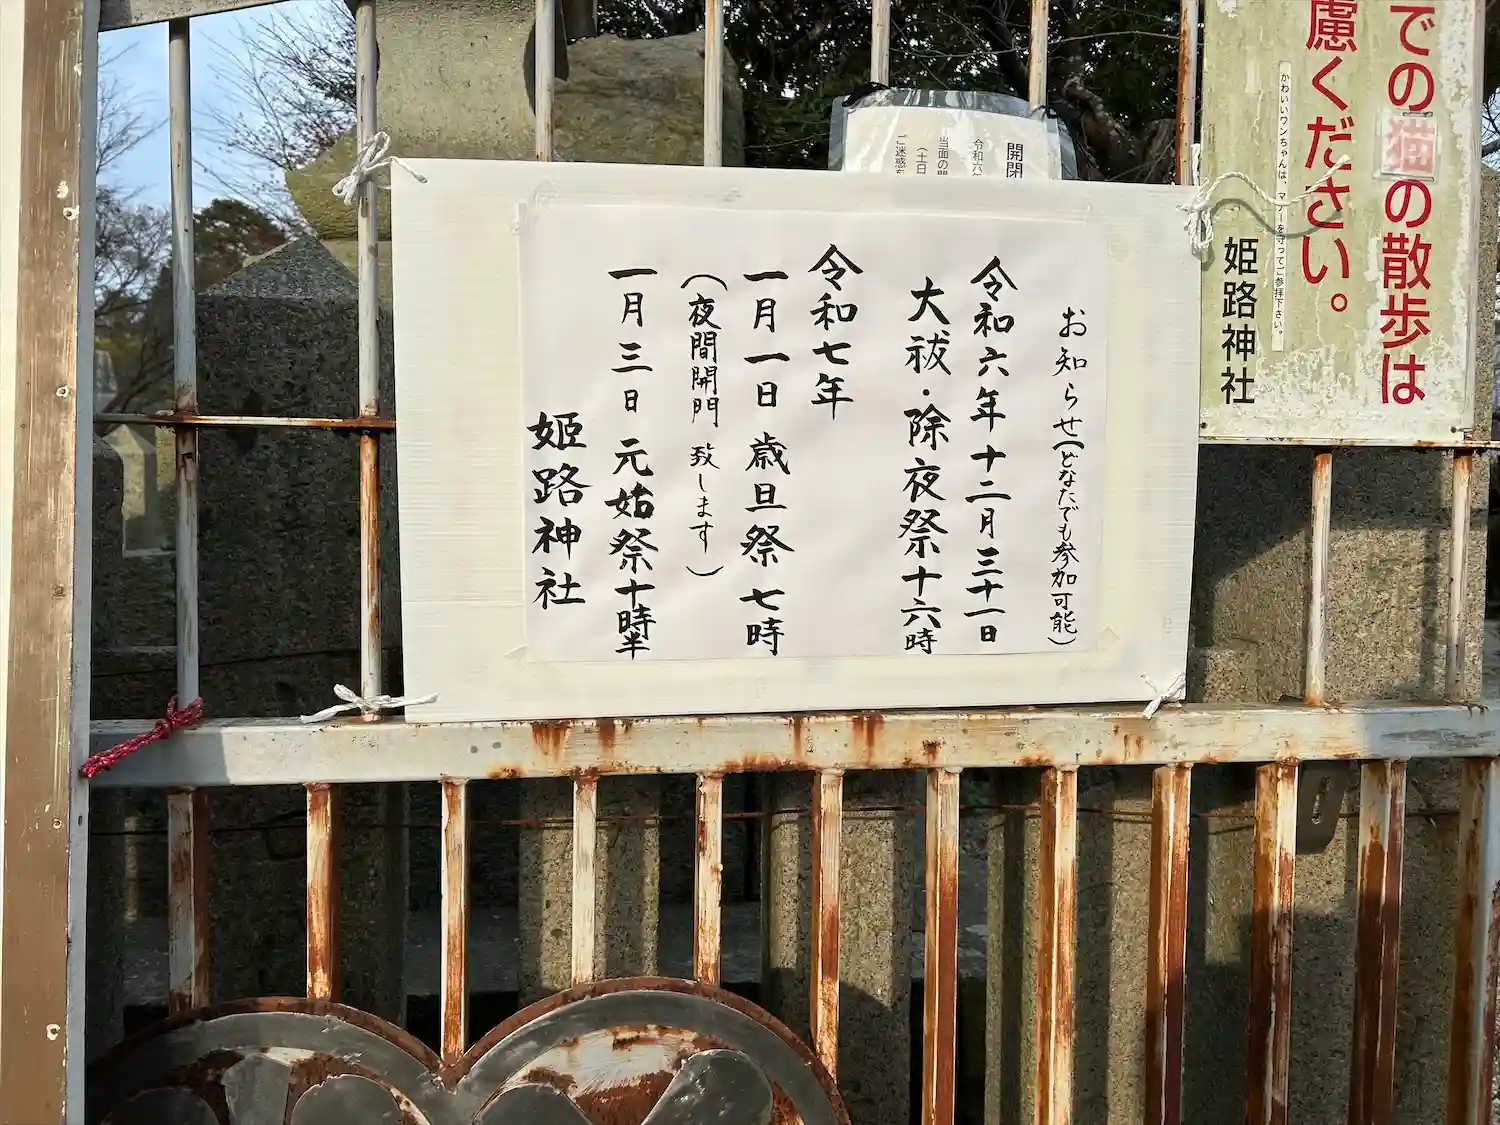 での猫の散歩は
慮ください。
かわいいワンちゃんは、マナーを守ってご参拝下さい。
姫路神社
開閉
令和六年
当面の間
（土日
ご迷惑を
お知らせ（どなたでも参加可能）
令和六年十二月三十一日
大祓・除夜祭十六時
令和七年
一月一日 歳旦祭 七時
（夜間開門 致します）
一月三日 元始祭十時半
姫路神社